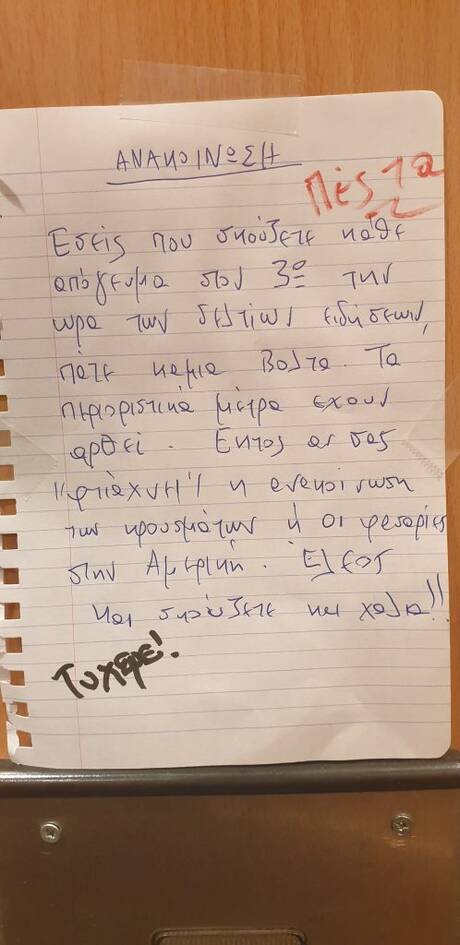 ΑΝΑΚΟΙΝΩΣΗ
Πές τα
Εσείς που σκούζετε κάθε
απόγευμα στον 3º την
ωρα των δελτίων ειδήσεων,
πάτε καμια βολτα. Τα
περιοριστικά μέτρα εχουν
αρθεί. Εκτος αν σας
"φτιάχνει" η ανακοινωση
των κρουσμάτων ή οι φασαρίες
στην Αμερική. Έλεος
και σκούζετε και χαλια!!
Τυχερε!